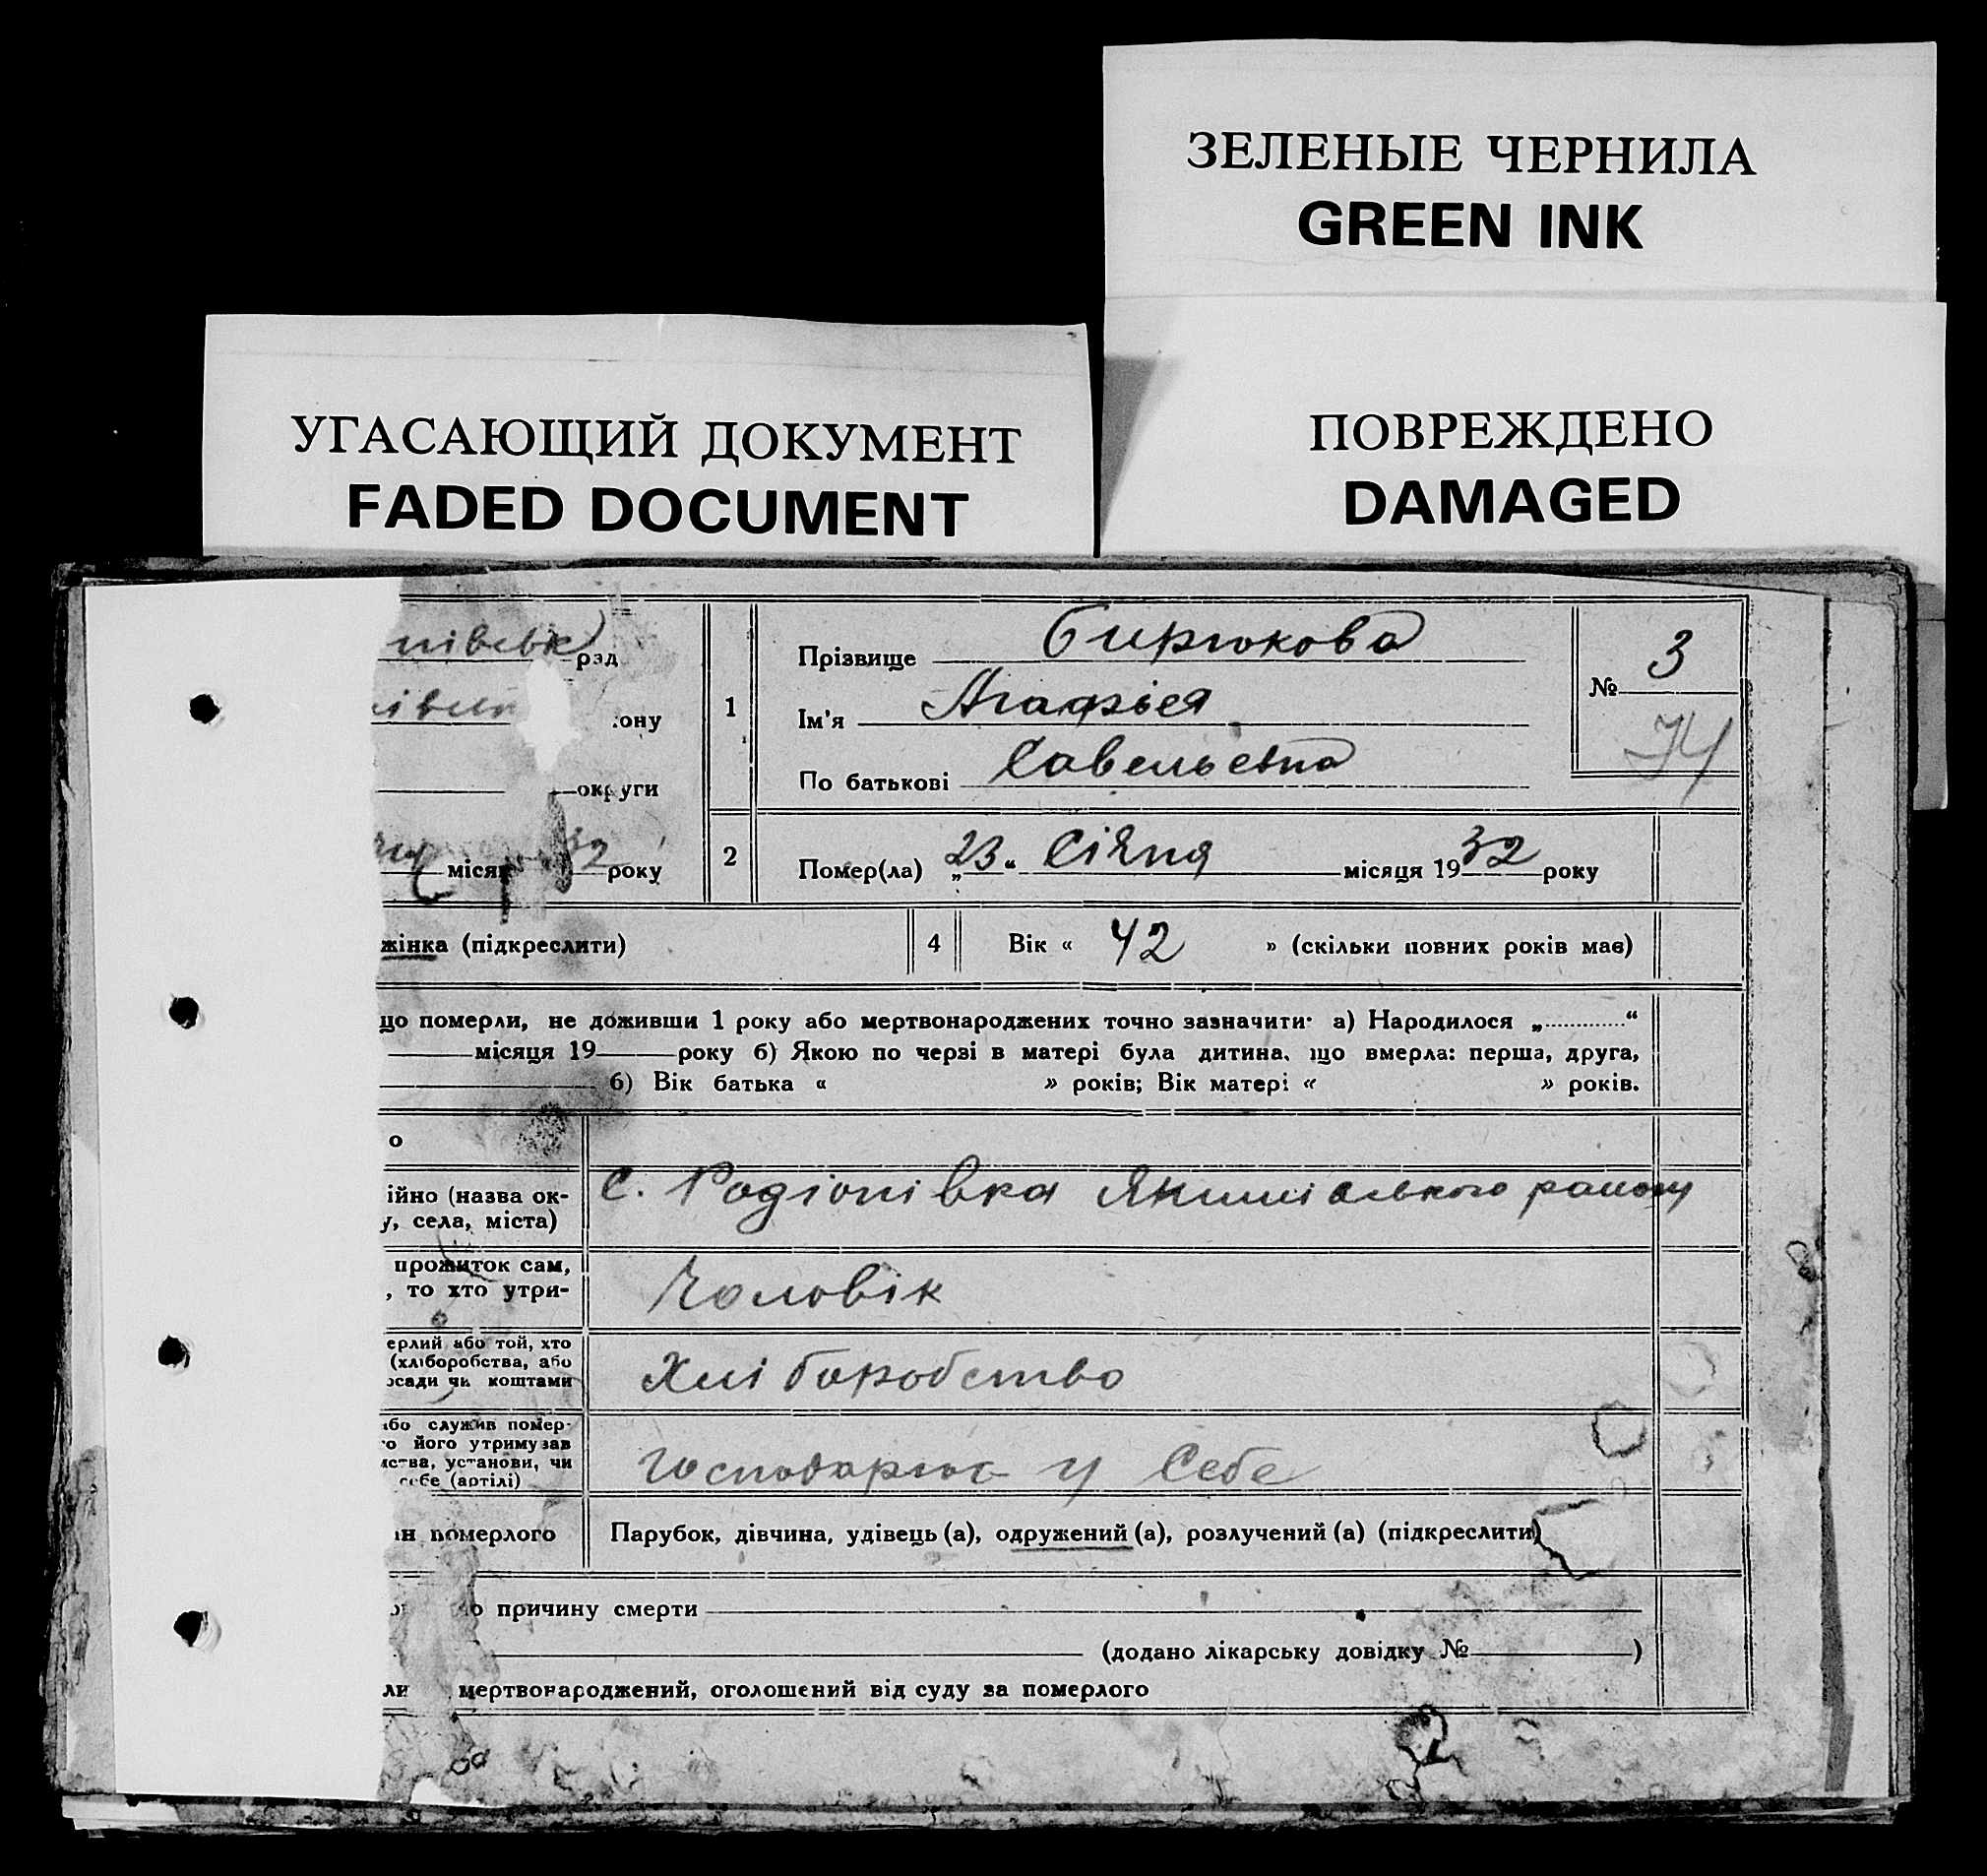 ЗЕЛЕНЫЕ ЧЕРНИЛА
GREEN INK
УГАСАЮЩИЙ ДОКУМЕНТ
FADED DOCUMENT
ПОВРЕЖДЕНО
DAMAGED
півськ рад
ону
округи
місяц 32 року
1
Прізвище Бирюкова
Ім'я Агафія
По батькові Савельевна
№ 3
74
2
Помер(ла) „23“ Січня місяця 1932 року
жінка (підкреслити)
4
Вік « 42 » (скільки повних років має)
що померли, не доживши 1 року або мертвонароджених точно зазначити: а) Народилося „ “
місяця 19 року б) Якою по черзі в матері була дитина, що вмерла: перша, друга,
б) Вік батька « » років; Вік матері « » років.
о
ійно (назва ок-
у, села, міста)
С. Родіонівка Якимівського району
прожиток сам,
, то хто утри-
Чоловік
ерлий або той, хто
(хліборобства, або
осади чи коштами
Хліборобство
або служив помер-
го його утримував
мства, установи, чи
себе (артілі)
Господарює у Себе
ан померлого
Парубок, дівчина, удівець (а), одружений (а), розлучений (а) (підкреслити)
о причину смерти
(додано лікарську довідку № )
ли мертвонароджений, оголошений від суду за померлого